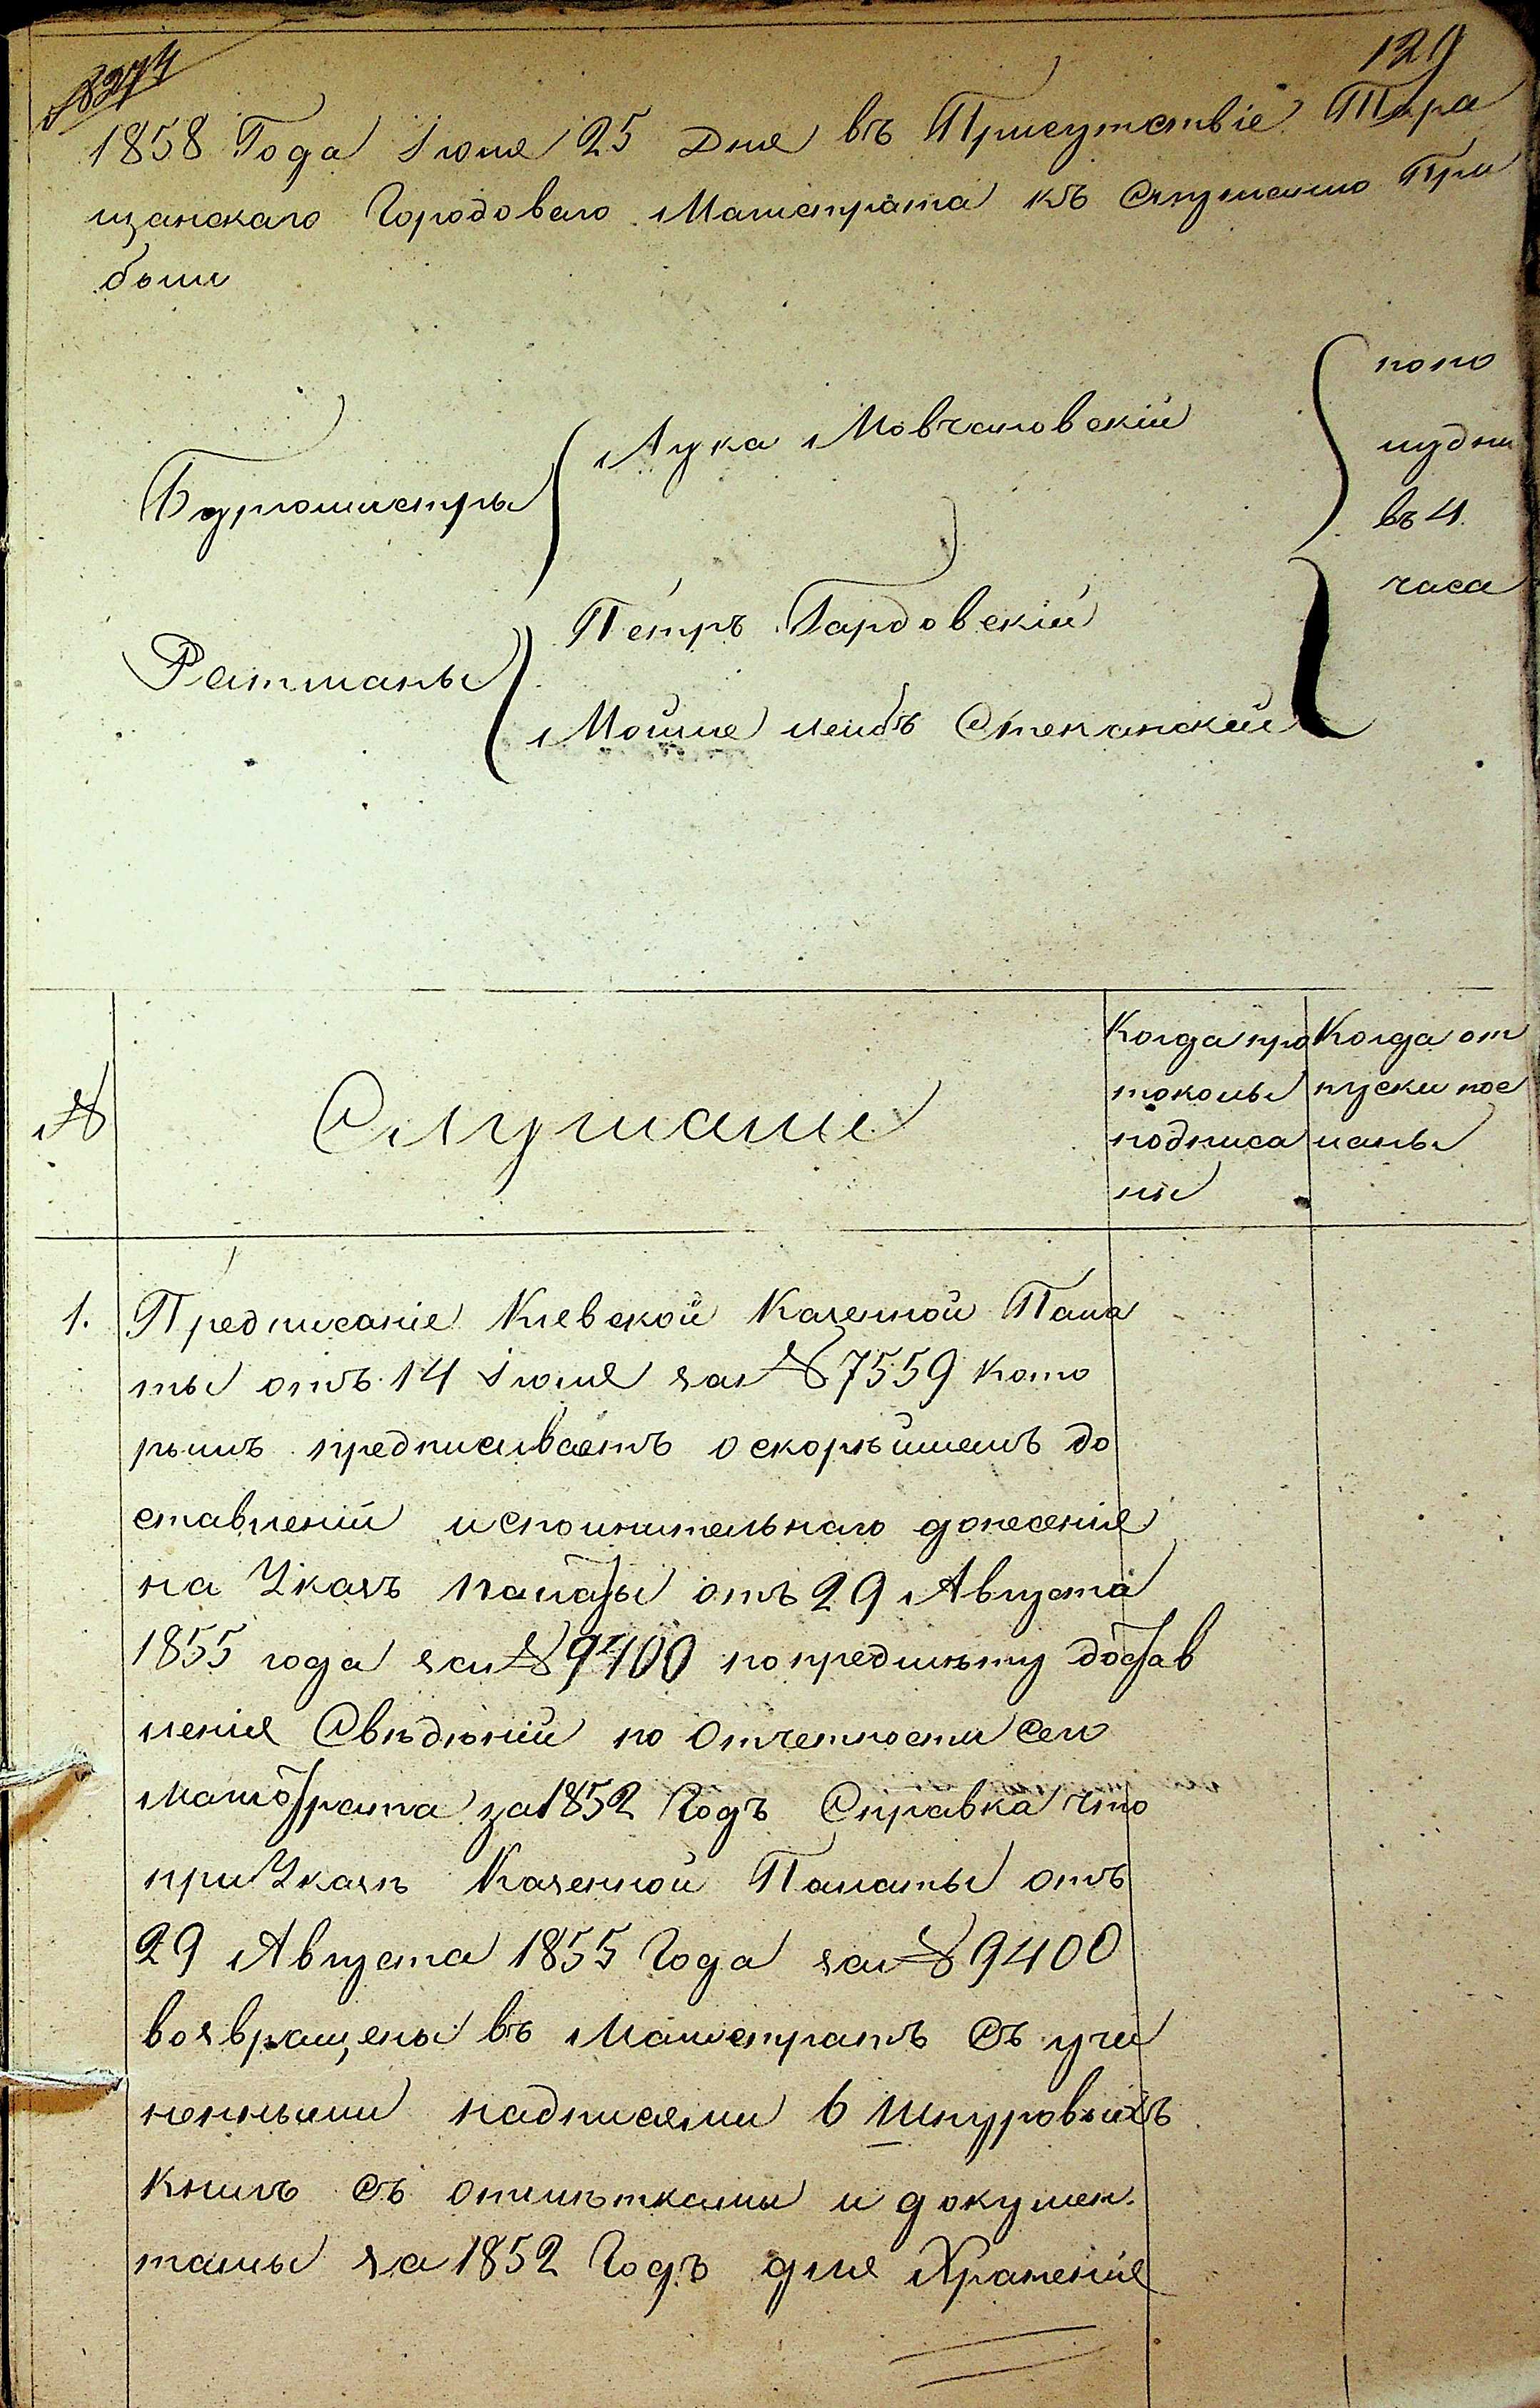 129
1858 Года Июня 25 Дня въ Присутствіе Тара
щанскаго Городоваго Магистрата къ Слушанію При
были
Бургомистры
Лука Мовчановский
попо
лудни
въ 4
часа
Ратманы
Петръ Гардовскій
Мойше лейбъ Стеканский
№
Слушание
Когда про
токолы
подписа
ны
Когда от
пуски пос
ланы
1. Предписаніе Киевской Казенной Пала
ты отъ 14 Июня за № 7559 кото
рымъ предписываетъ о скорѣйшемъ до
ставлении исполнительнаго донесенія
на Указъ палаты отъ 29 Августа
1855 года за № 9400 по предмѣту достав
ления Свѣдѣній по Отчетности сего
Магистрата за 1852 Годъ Справка что
при Указѣ Казенной Палаты отъ
29 Августа 1855 Года за № 9400
возвращены въ Магистратъ съ учи
ненными надписями 6 Шнуровыхъ
Книгъ съ отмѣтками и докумен
тамы за 1852 Годъ для Хранения